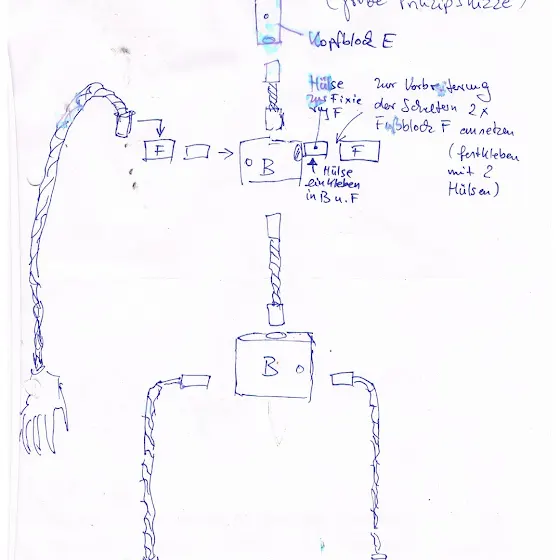 (grobe Prinzipskizze)
Kopfblock E
Hülse
zur Fixie
rung F
zur Verbreiterung
der Schultern 2x
Fußblock F ansetzen
(festkleben
mit 2
Hülsen)
F
B
F
Hülse
einkleben
in B u. F
B